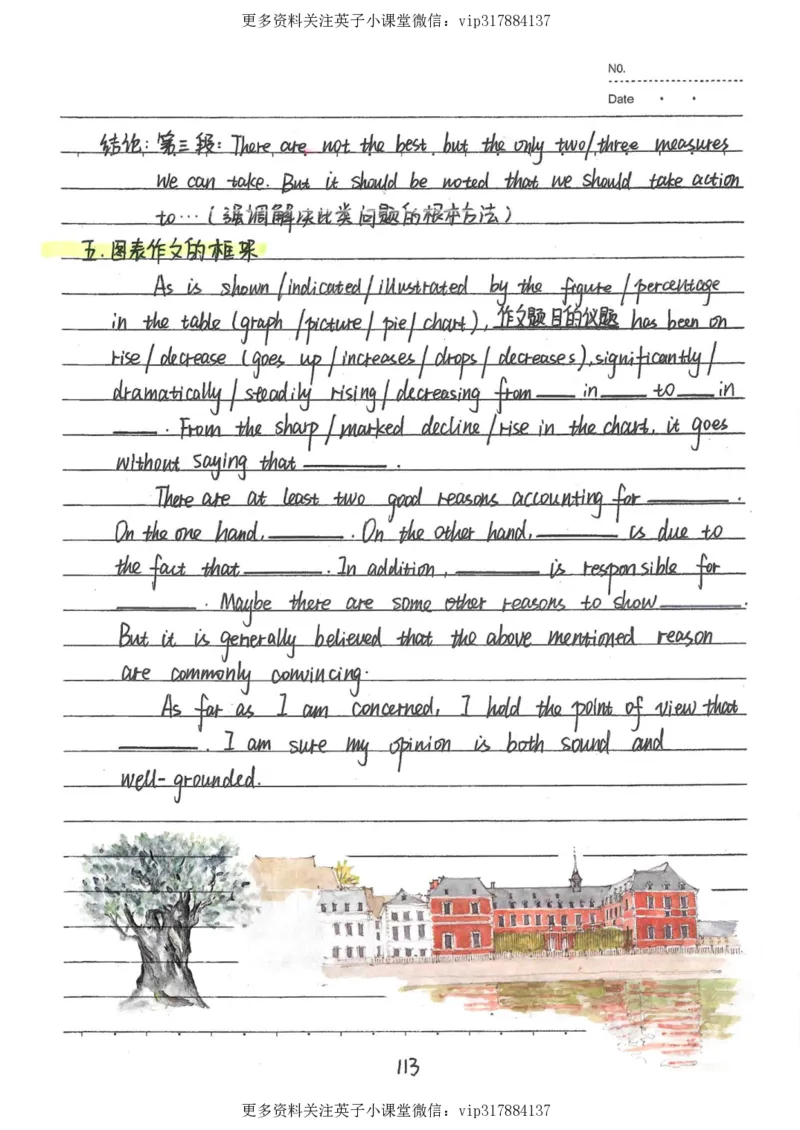 更多资料关注英子小课堂微信：vip317884137
NO.
Date
结论：第三段：There are not the best, but the only two/three measures
we can take. But it should be noted that we should take action
to…（强调解决此类问题的根本方法）
五.图表作文的框架
As is shown/indicated/illustrated by the figure/percentage
in the table (graph/picture/pie/chart), 作文题目的议题 has been on
rise/decrease (goes up/increases/drops/decreases), significantly/
dramatically/steadily rising/decreasing from ____ in ____ to ____ in
____. From the sharp/marked decline/rise in the chart, it goes
without saying that ____.
There are at least two good reasons accounting for ____.
On the one hand, ____. On the other hand, ____ is due to
the fact that ____. In addition, ____ is responsible for
____. Maybe there are some other reasons to show ____.
But it is generally believed that the above mentioned reason
are commonly convincing.
As far as I am concerned, I hold the point of view that
____. I am sure my opinion is both sound and
well-grounded.
113
更多资料关注英子小课堂微信：vip317884137